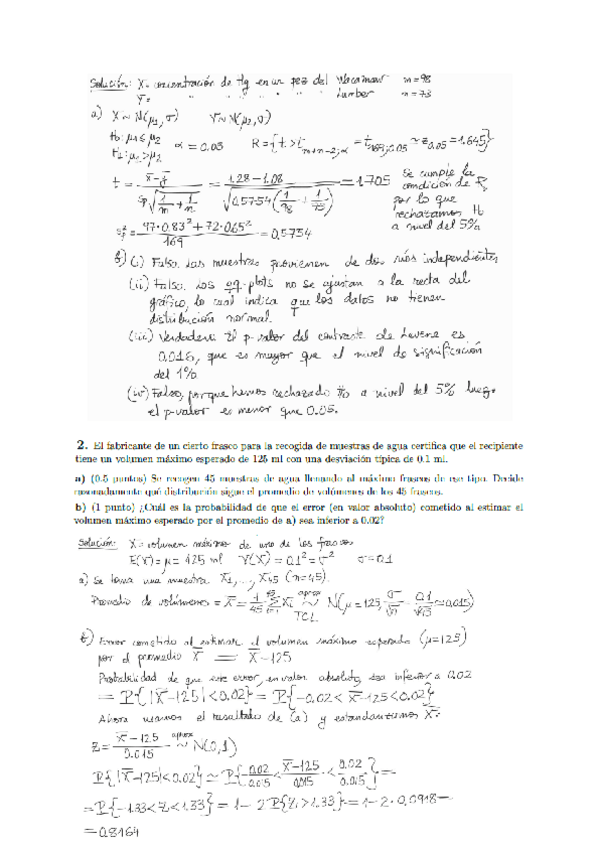 Solución: X = concentración de Hg en un pez del Wacamaw m=98
Y = " " " " " " Lumber n=73
a) X ~ N(μ₁, σ) Y ~ N(μ₂, σ)
H₀: μ₁ ≤ μ₂
H₁: μ₁ > μ₂ α = 0.05 R = {t > t_{m+n-2;α} = t_{169;0.05} ≃ z_{0.05} = 1.645}
t = (x̄ - ȳ) / (s_p √(1/m + 1/n)) = (1.28 - 1.08) / √(0.5754 (1/98 + 1/73)) = 1.705
Se cumple la
condición de R,
por lo que
rechazamos H₀
a nivel del 5%
s_p² = (97·0.83² + 72·0.65²) / 169 = 0.5754
b) (i) Falso. Las muestras provienen de dos ríos independientes
(ii) Falso. Los qq-plots no se ajustan a la recta del
gráfico, lo cual indica que los datos no tienen
distribución normal.
(iii) Verdadero. El p-valor del contraste de Levene es
0.018, que es mayor que el nivel de significación
del 1%
(iv) Falso, porque hemos rechazado H₀ a nivel del 5% luego
el p-valor es menor que 0.05.
2. El fabricante de un cierto frasco para la recogida de muestras de agua certifica que el recipiente
tiene un volumen máximo esperado de 125 ml con una desviación típica de 0.1 ml.
a) (0.5 puntos) Se recogen 45 muestras de agua llenando al máximo frascos de ese tipo. Decide
razonadamente qué distribución sigue el promedio de volúmenes de los 45 frascos.
b) (1 punto) ¿Cuál es la probabilidad de que el error (en valor absoluto) cometido al estimar el
volumen máximo esperado por el promedio de a) sea inferior a 0.02?
Solución: X = volumen máximo de uno de los frascos
E(X) = μ = 125 ml V(X) = 0.1² = σ² σ = 0.1
a) Se toma una muestra X₁, ..., X₄₅ (n=45).
Promedio de volúmenes = X̄ = 1/45 Σ_{i=1}^{45} Xᵢ ~ aprox TCL N(μ = 125, σ/√n = 0.1/√45 ≃ 0.015)
b) Error cometido al estimar el volumen máximo esperado (μ=125)
por el promedio X̄ = X̄ - 125
Probabilidad de que este error, en valor absoluto, sea inferior a 0.02
= P{|X̄-125| < 0.02} = P{-0.02 < X̄-125 < 0.02}
Ahora usamos el resultado de (a) y estandarizamos X̄:
Z = (X̄ - 125) / 0.015 ~ aprox N(0,1)
P{|X̄-125| < 0.02} ≃ P{-0.02/0.015 < (X̄-125)/0.015 < 0.02/0.015} =
= P{-1.33 < Z < 1.33} = 1 - 2 P{Z > 1.33} = 1 - 2·0.0918 =
= 0.8164